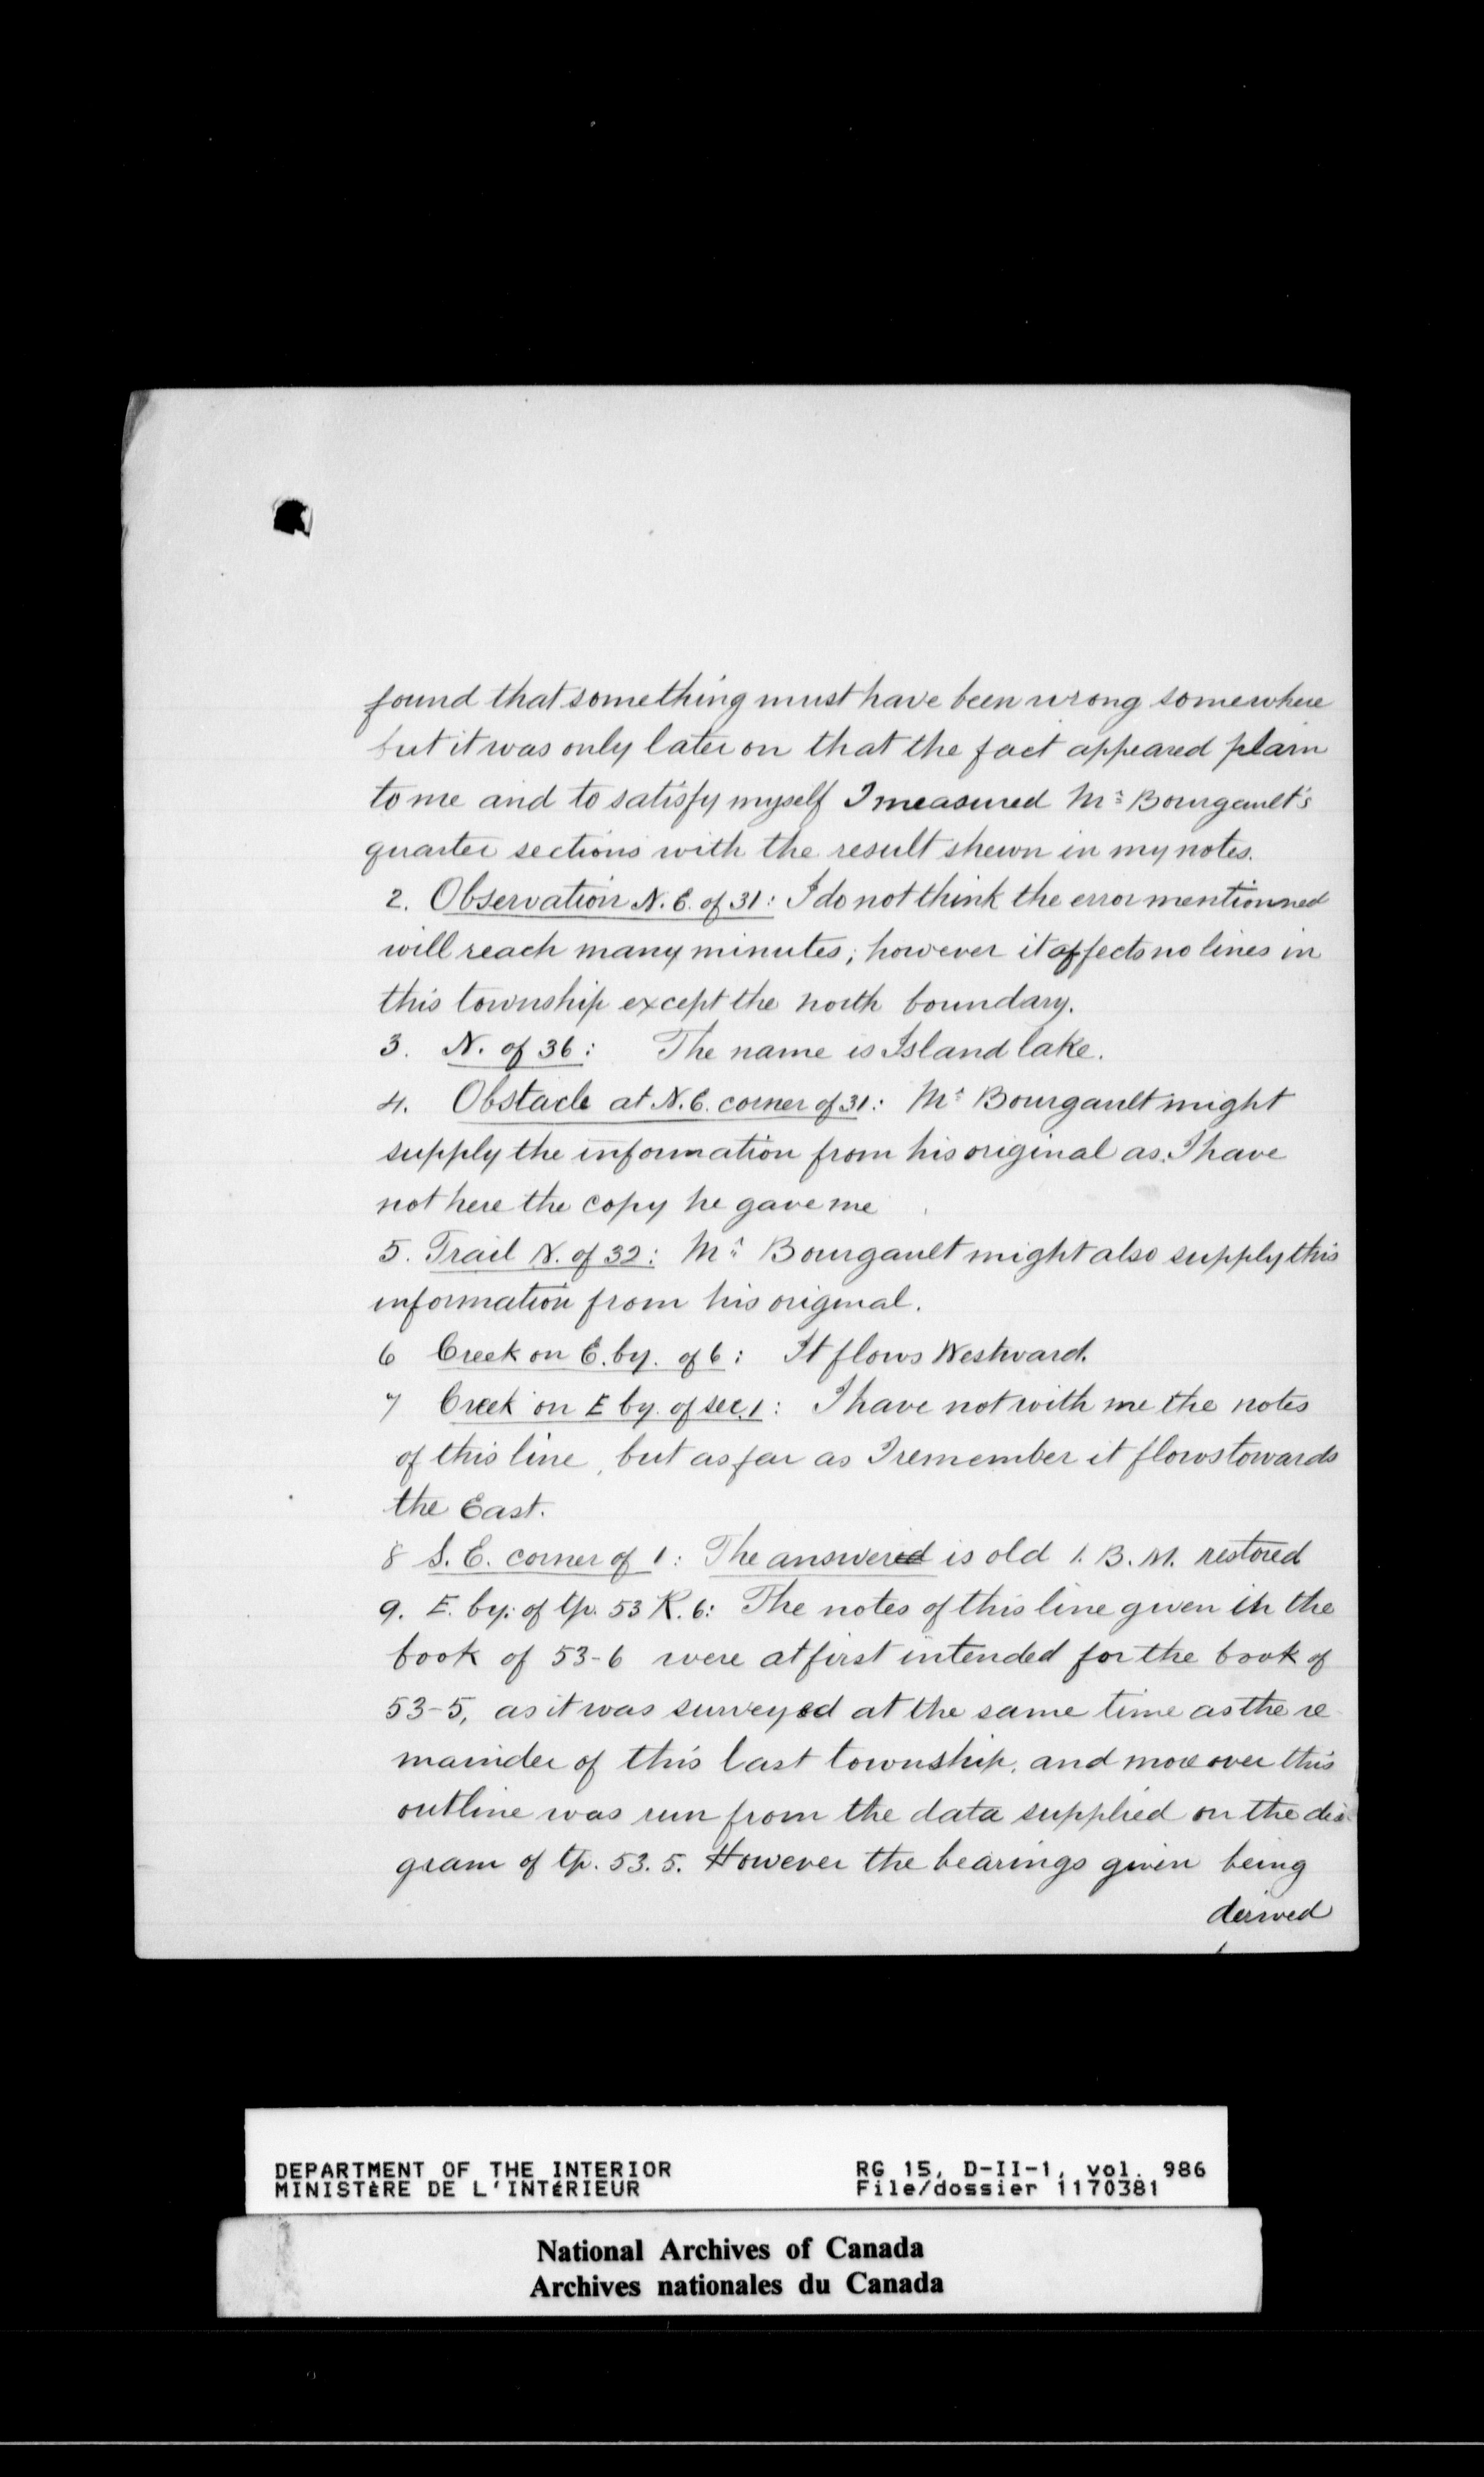 found that something must have been wrong somewhere
but it was only later on that the fact appeared plain
to me and to satisfy myself I measured Mr Bourgault's
quarter sections with the result shewn in my notes.
2. Observation N. E. of 31: I do not think the error mentionned
will reach many minutes; however it affects no lines in
this township except the north boundary.
3. N. of 36: The name is Island lake.
4. Obstacle at N.E. corner of 31: Mr Bourgault might
supply the information from his original as I have
not here the copy he gave me
5. Trail N. of 32: Mr Bourgault might also supply this
information from his original.
6 Creek on E. by. of 6: It flows Westward.
7 Creek on E by. of sec. 1: I have not with me the notes
of this line, but as far as I remember it flows towards
the East.
8 S. E. corner of 1: The answered is old I. B. M. restored
9. E. by: of tp. 53 R. 6: The notes of this line given in the
book of 53-6 were at first intended for the book of
53-5, as it was surveyed at the same time as the re-
mainder of this last township, and moreover this
outline was run from the data supplied on the dia-
gram of tp. 53. 5. However the bearings given being
derived
DEPARTMENT OF THE INTERIOR RG 15, D-II-1, vol. 986
MINISTÈRE DE L'INTÉRIEUR File/dossier 1170381
National Archives of Canada
Archives nationales du Canada